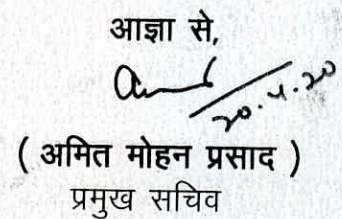 आज्ञा से,
20.4.20
( अमित मोहन प्रसाद )
प्रमुख सचिव